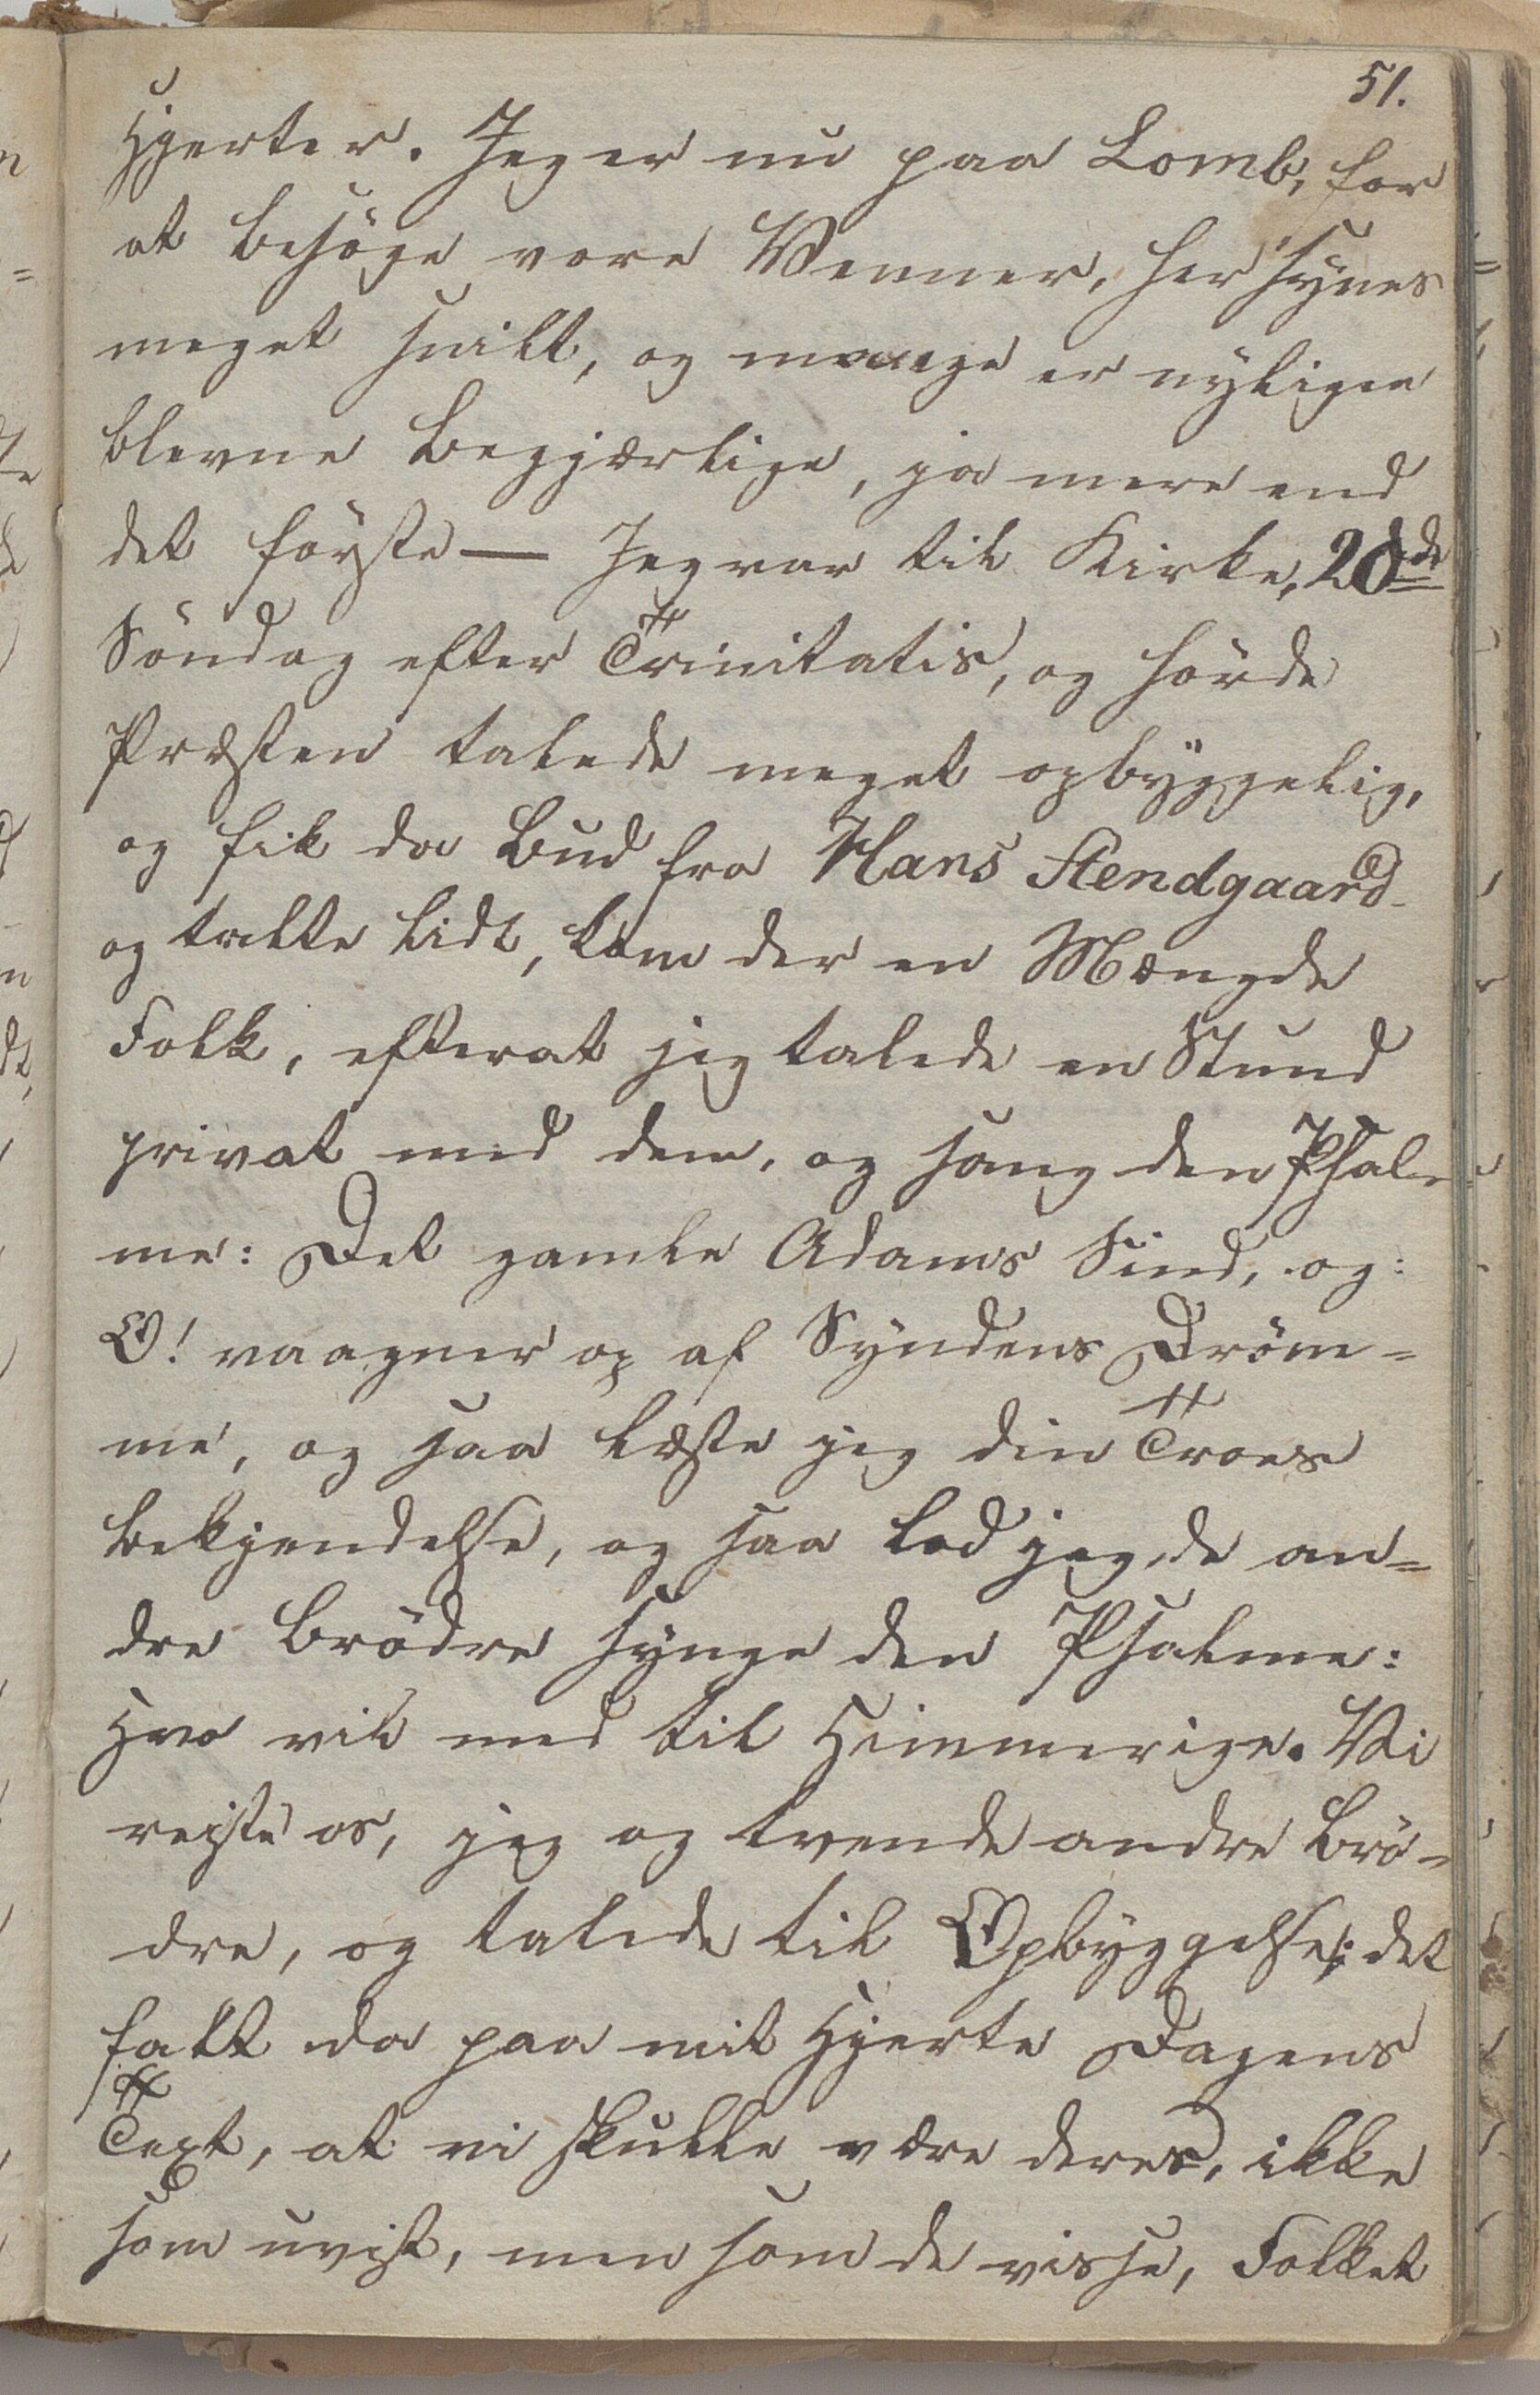 51.
Hjerter. Jeg er nu paa Lomb, for
at besöge vore Venner, her synes
meget snilt, og mange er nyligen
blevne begjærlige, ja mere end
det förste — Jeg var til Kirke, 20de
Söndag efter Trinitatis, og hörde
Præsten talede meget opbyggelig,
og fik da Bud fra Hans Stendgaard
og talte lidt, kom der en Mængde
Folk, efterat jeg talede en Stund
privat med dem, og sang den Psal-
me: Det gamle Adams Sind, og:
O! vaagner op af Syndens Dröm=
me, og saa læste jeg din Troes
bekjendelse, og saa lod jeg de an=
dre Brödre synge den Psalme:
Hvo vil med til Himmerige. Vi
reiste os, jeg og tvende andre Brö-
dre, og talede til Opbyggelse; det
falt da paa mit Hjerte Dagens
Text, at vi skulle være deres, ikke
som uvist, men som de visse, Folket